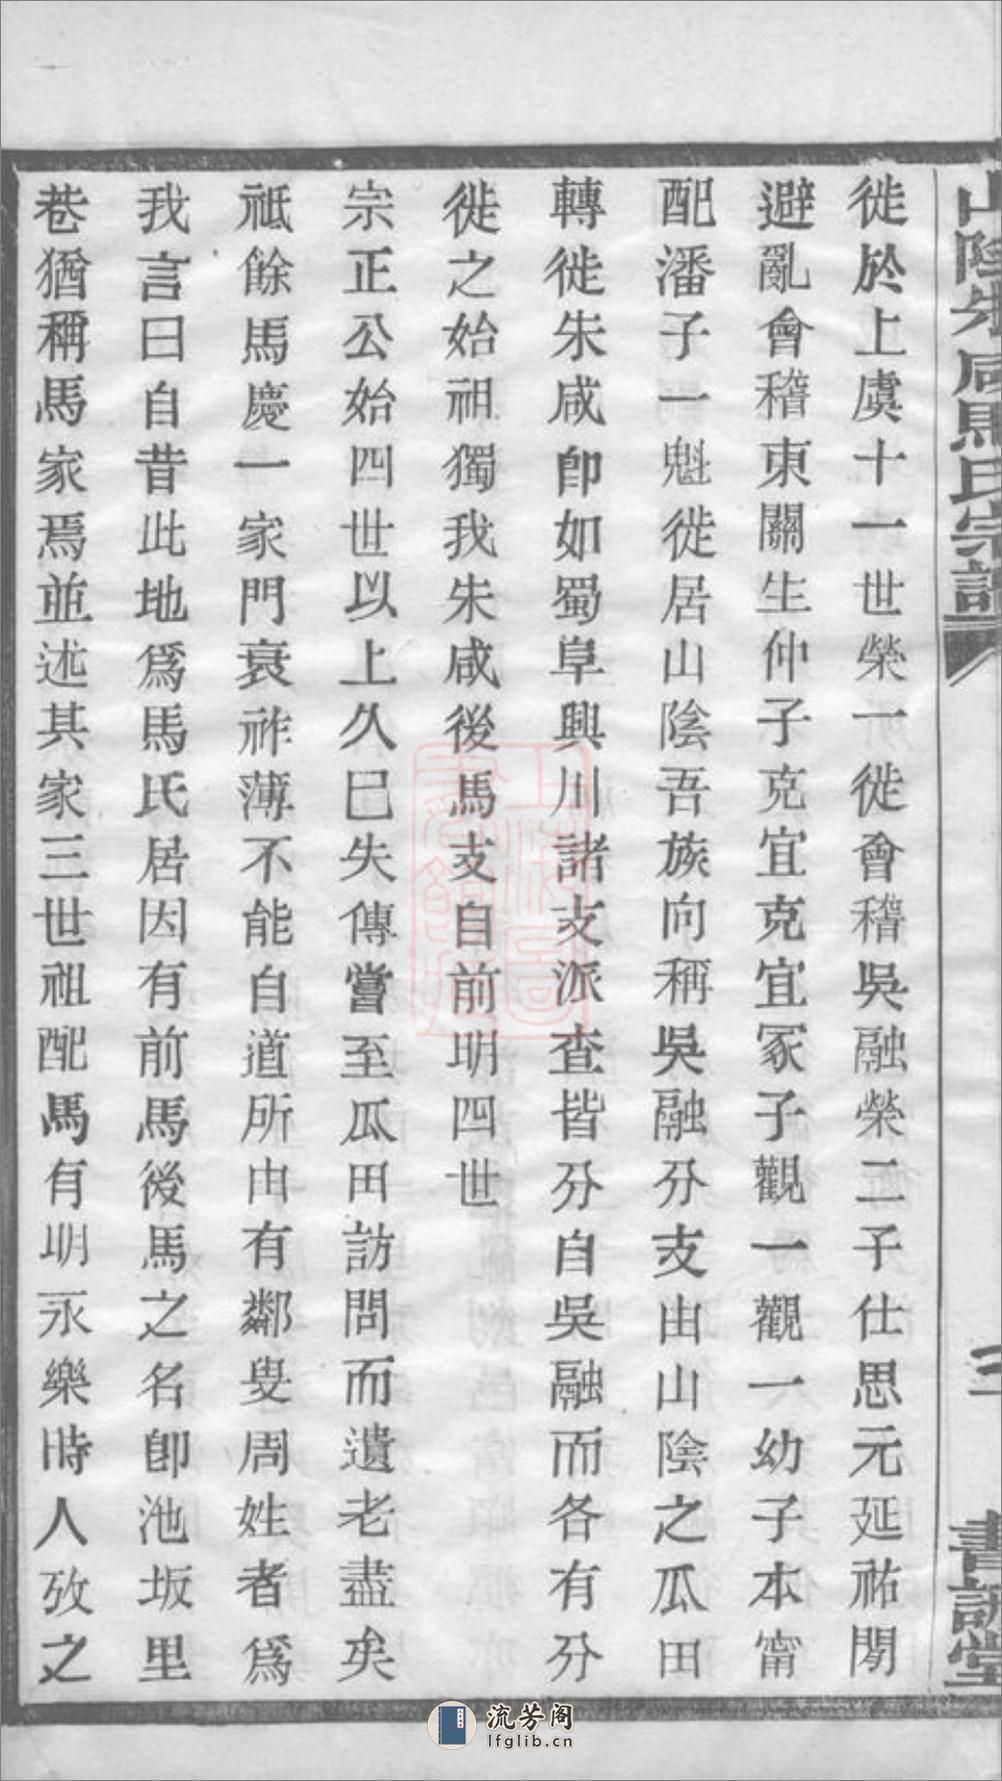 山陰朱咸馬氏宗譜
三
書誠堂
徙於上虞十一世榮一徙會稽吳融榮二子仕思元延祐閒
避亂會稽東關生仲子克宜克宜冢子觀一觀一幼子本甯
配潘子一魁徙居山陰吾族向稱吳融分支由山陰之瓜田
轉徙朱咸卽如蜀阜興川諸支派查皆分自吳融而各有分
徙之始祖獨我朱咸後馬支自前明四世
宗正公始四世以上久已失傳嘗至瓜田訪問而遺老盡矣
祗餘馬慶一家門衰祚薄不能自道所由有鄰叟周姓者爲
我言曰自昔此地爲馬氏居因有前馬後馬之名卽池坂里
巷猶稱馬家焉並述其家三世祖配馬有明永樂時人攷之
流芳阁
lfglib.cn